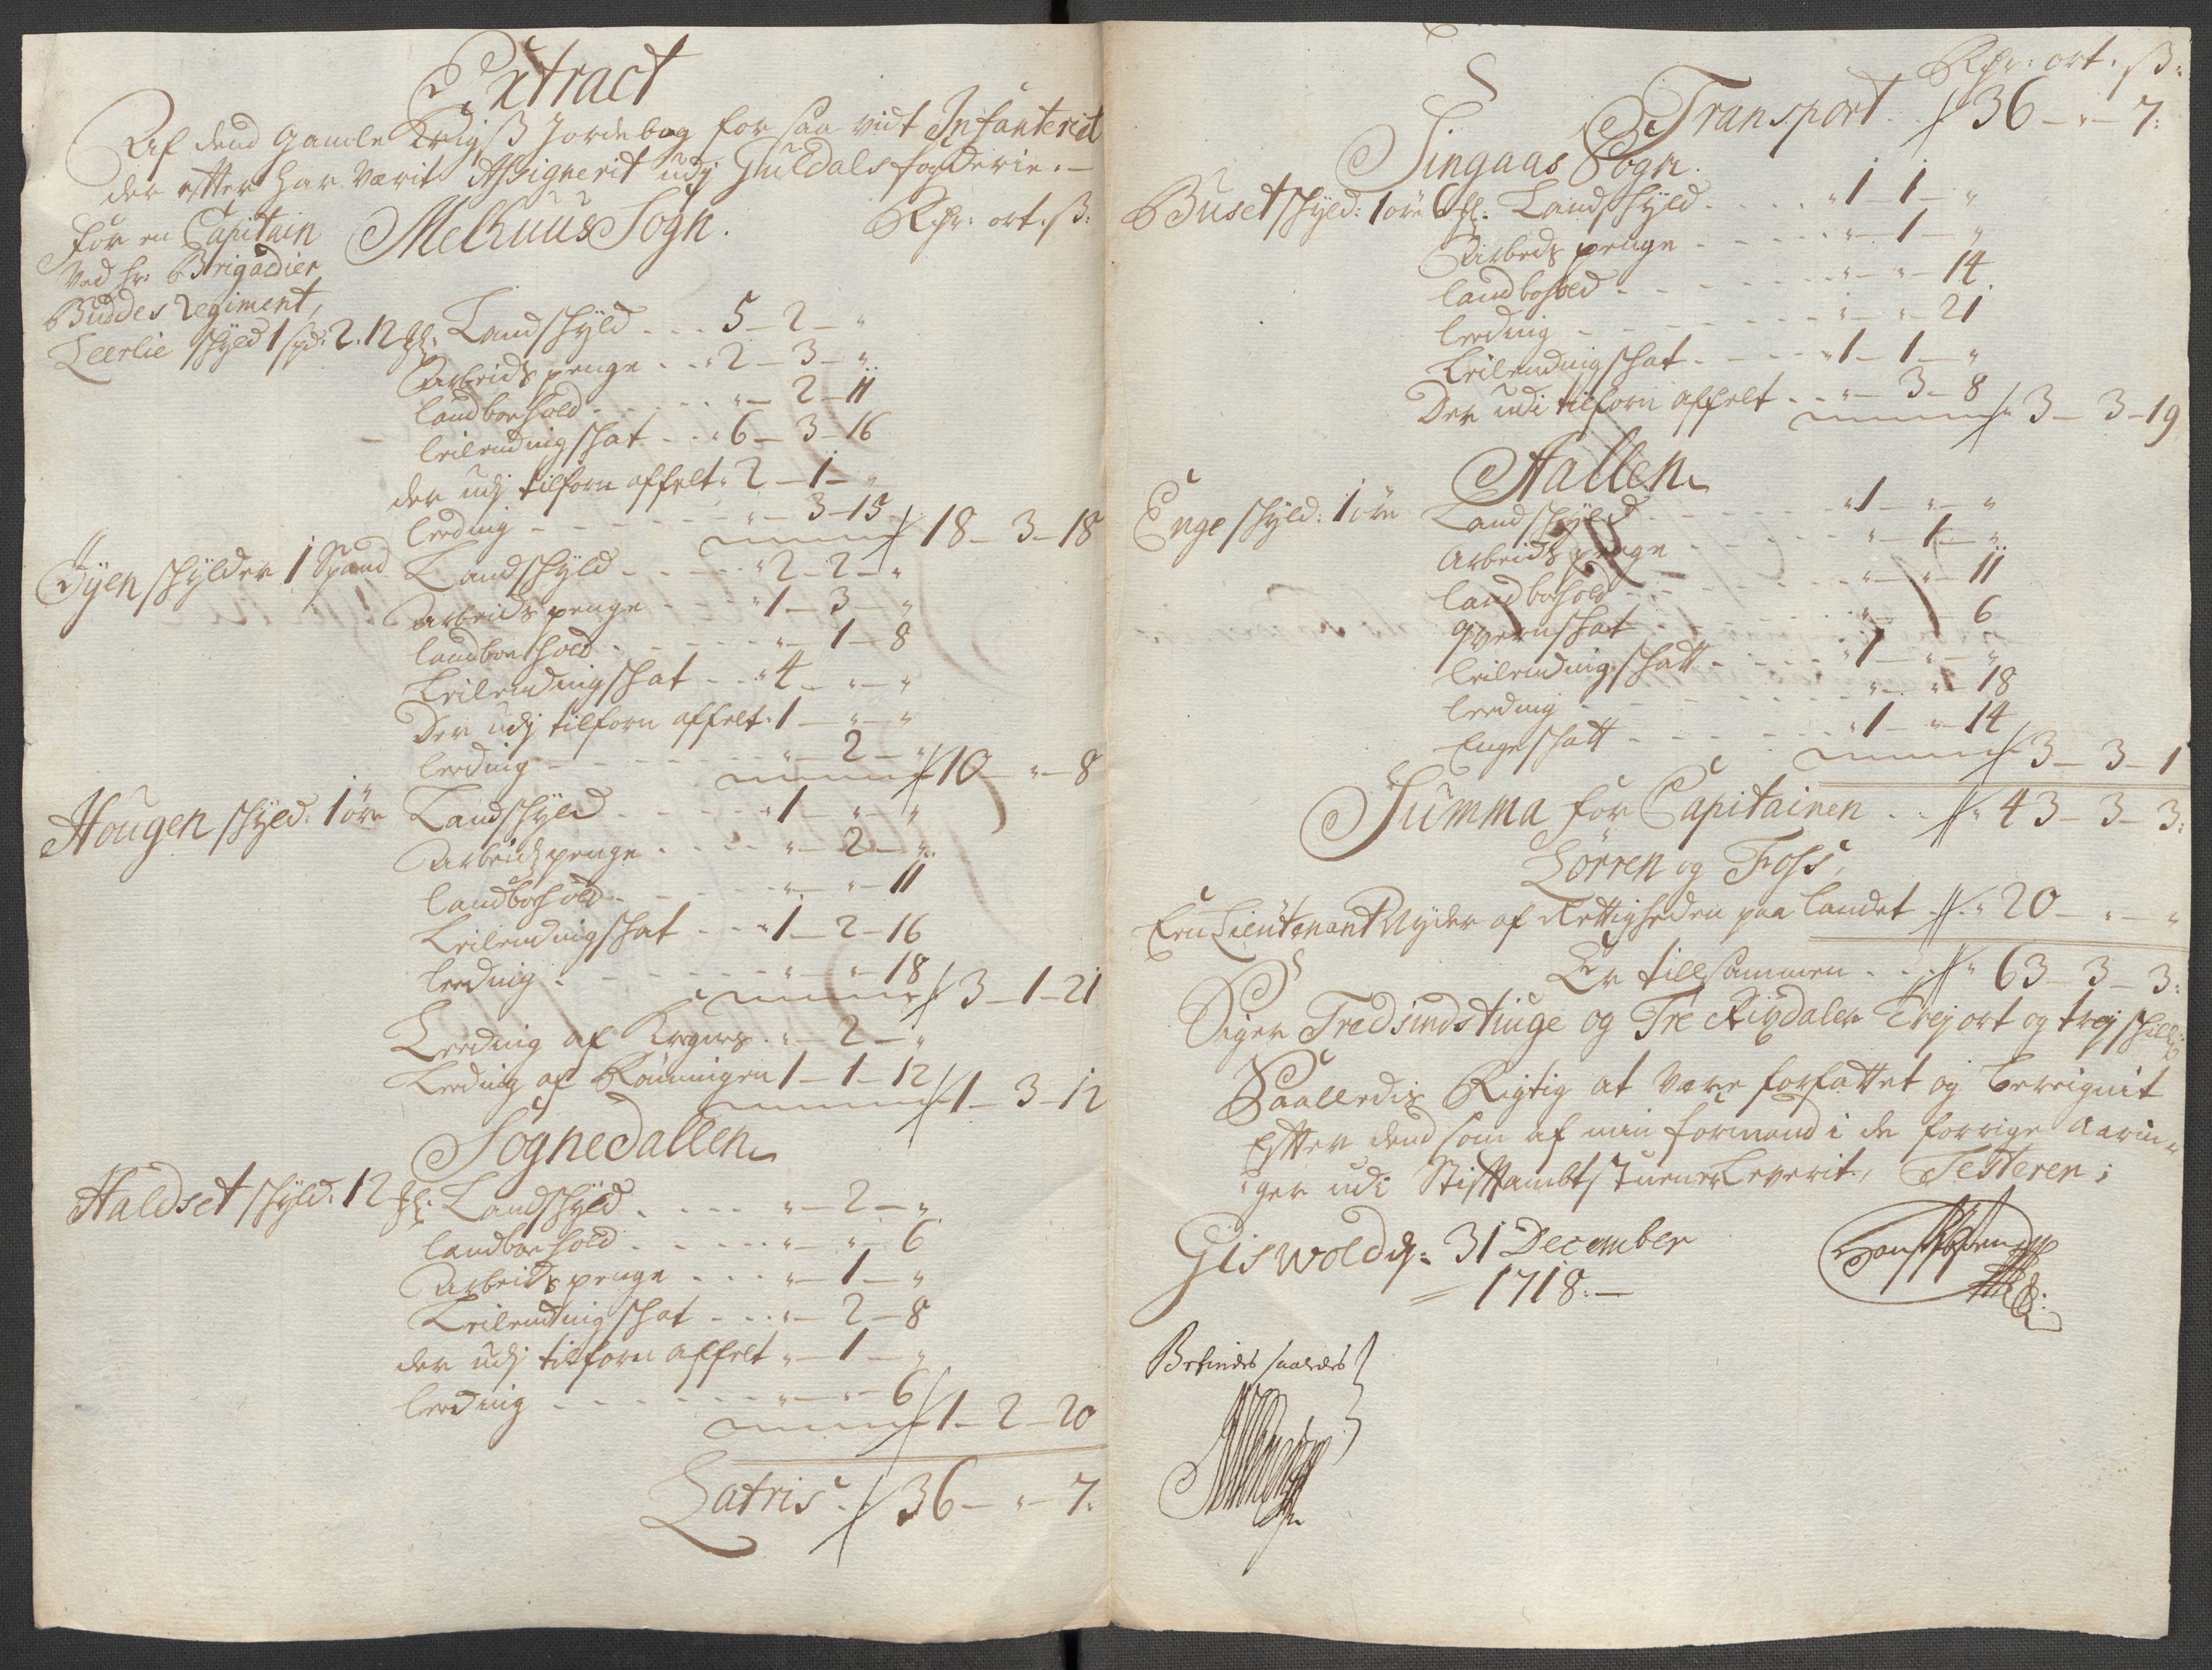 Extract
Af dend gamle Krigs Jordebog for saa vidt Infanteriet
der efter harværit Assignerit udj Guldals fogderie.—
for en Capitain
Ved hr: Brigadier
Buddes Regiment,
Melhuus Sogn. Rdr: ort. ß:
Leerlie skyld 1 spd: 2. 12 Landskyld . . . 5 – 2 – "
Arbeids penge . . " 2 – 3 – "
landboehold . . . . " – 2 – 11
leilendingskat . . " 6 – 3 – 16
der udj tilforn affelt " 2 – 1 – "
leeding – – – " – 3 – 15 18 – 3 – 18
Øyen skylder 1 Spand Landskyld . . . " 2 – 2 – "
Arbeids penge . . . " 1 – 3 – "
landboehold . . . . " – 1 – 8
Leilendingskat . . . " 4 – " – "
Der udj tilforn affelt " 1 – " – "
leeding – – – " – 2 – " 10 – " – 8
Hougen skyld: 1 øre Landskyld . . . . " 1 – " – "
Arbeids penge . . . " – 2 – "
landbohold . . . . " – " – 11
Leilendingskat . . . " 1 – 2 – 16
leeding . – – – " – " – 18 3 – 1 – 21
Leeding af . " – 2 – "
Leeding af Rønningen 1 – 1 – 12 1 – 3 – 12
Sognedallen
Haldset skyld: 12 Landskyld . . . . " – 2 – "
landboehold . . . . " – " – 6
Arbeids penge . . . " – 1 – "
Leilendingskat . . . " – 2 – 8
der udj tilforn affelt " – 1 – "
leeding . . . . " – " – 6 1 – 2 – 20
Latris . 36 – " – 7.
Rdr: ort. ß:
Transport . 36 – " – 7:
Singaas Sogn.
Buset skyld: 1 øre 6 Landskyld . . . . " 1 – 1 – "
Arbeds penge . . . . " – 1 – "
landbohold . . . . " – " – 14
leeding . . . . " – " – 21
Leilendingskat . . . . " 1 – 1 – "
Der udi tilforn affelt . . " – 3 – 8 3 – 3 – 19
Aallen
Enge skyld: 1 øre Landskyld . . . . " 1 – " – "
Arbeids penge . . . . " – 1 – "
landbohold . . . . " – " – 11
qvernskat . . . . " – " – 6
leilendingskatt . . . . " 1 – " – "
leeding . . . . " – " – 18
Engeskatt . . . . " 1 – " – 14
3 – 3 – 1
Summa for Capitainen . . " 43 – 3 – 3:
Lørren og Foss,
Een Lieutenant Nyder af Rettigheden paa landet . " 20 – " – "
Er tillsammen . . " 63 – 3 – 3:
Siger Tredsindstiuge og Tre Rixdaler Trej ort og trej skill:
Saalledis Rigtig at være forfattet og bereignit
Efter dend som af min formand i de forrige aarin-
ger udi Stiftambtstuen er Leverit, Testeren;
Giswold d: 31 December
1718.—
Befindes saaledes